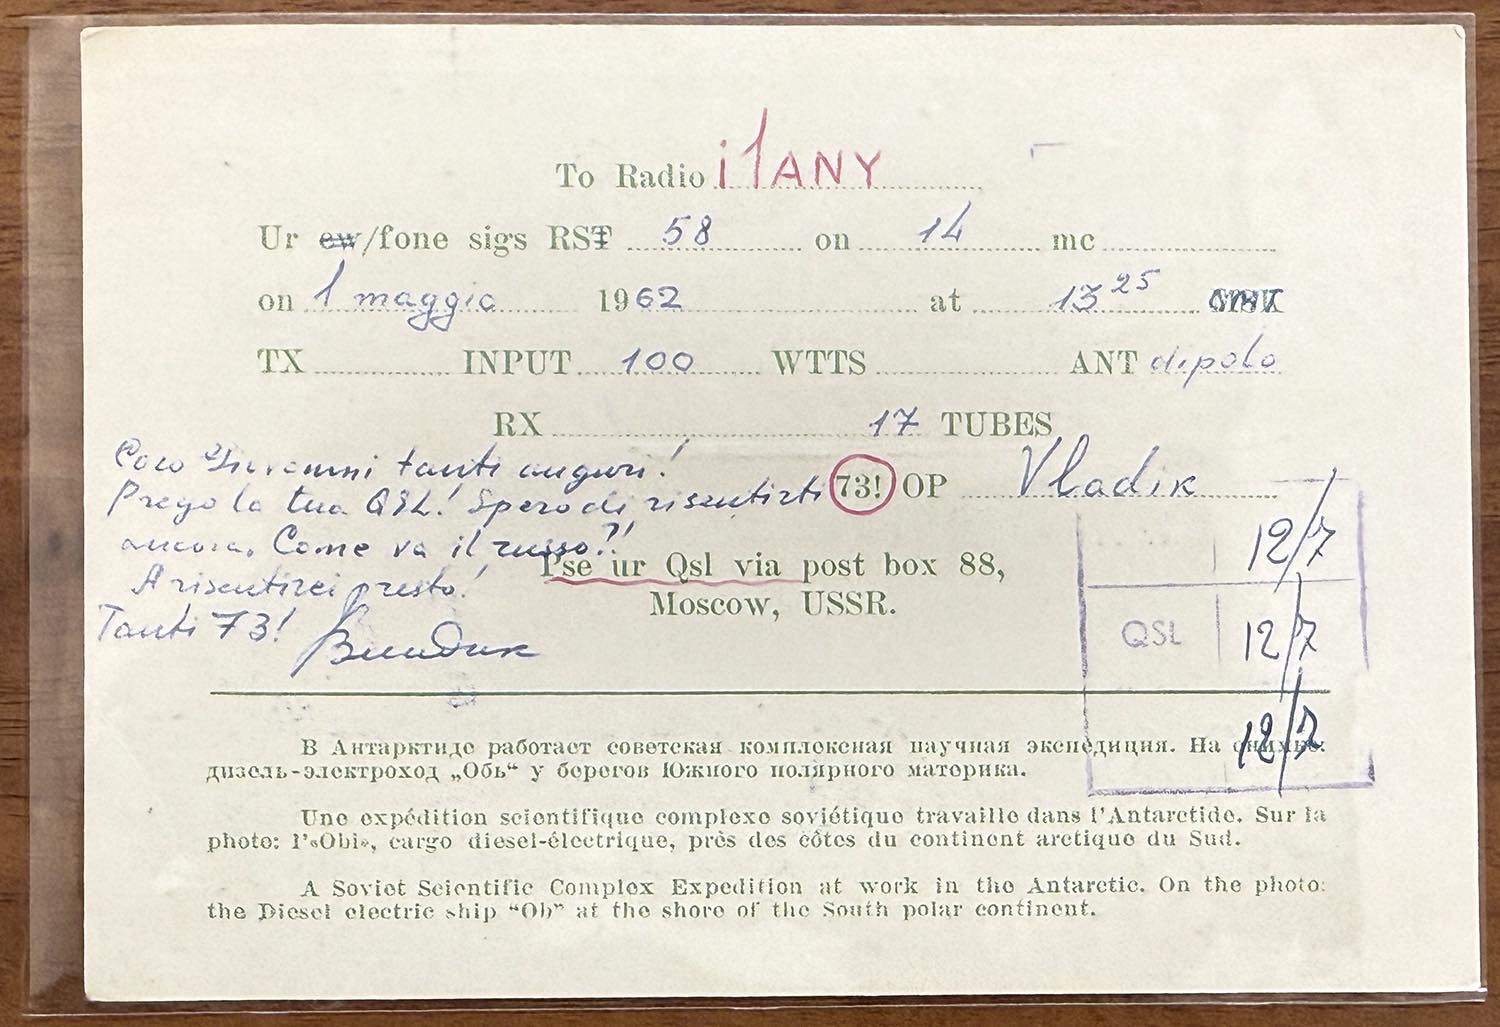 To Radio i1ANY
Ur cw/fone sigs RST 58 on 14 mc
on 1 maggio 1962 at 13 25
TX INPUT 100 WTTS ANT dipolo
RX 17 TUBES
Caro Giovanni tanti auguri!
Prego la tua QSL! Spero di risentirti
73! OP Vladik
ancora. Come va il russo?!
A risentirci presto!
Tanti 73!
Владик
Pse ur Qsl via post box 88,
Moscow, USSR.
12/7
QSL 12/7
12/7
В Антарктиде работает советская комплексная научная экспедиция. На снимке:
дизель-электроход „Обь“ у берегов Южного полярного материка.
Une expédition scientifique complexe soviétique travaille dans l'Antarctide. Sur la
photo: l'«Obi», cargo diesel-électrique, près des côtes du continent arctique du Sud.
A Soviet Scientific Complex Expedition at work in the Antarctic. On the photo:
the Diesel electric ship “Ob” at the shore of the South polar continent.